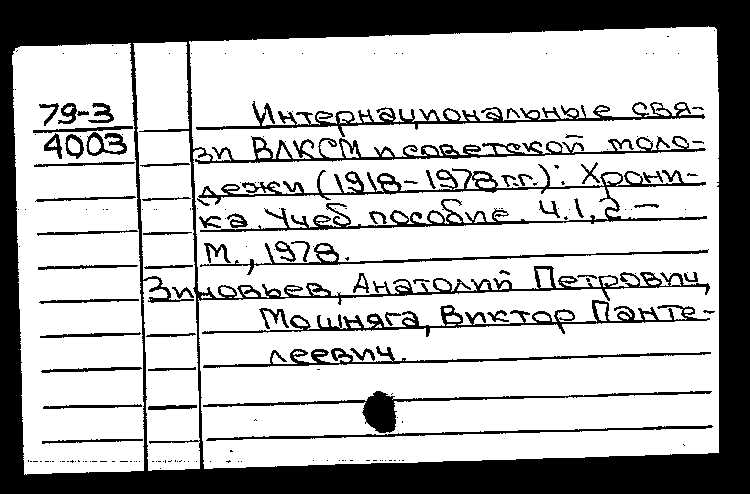 79-3 Интернациональные свя-
4003 зи ВЛКСМ и советской моло-
дежи (1918-1978 г.г.): Хрони-
ка. Учеб. пособие. Ч. 1, 2. —
М., 1978.
Зиновьев, Анатолий Петрович,
Мошняга, Виктор Панте-
леевич.